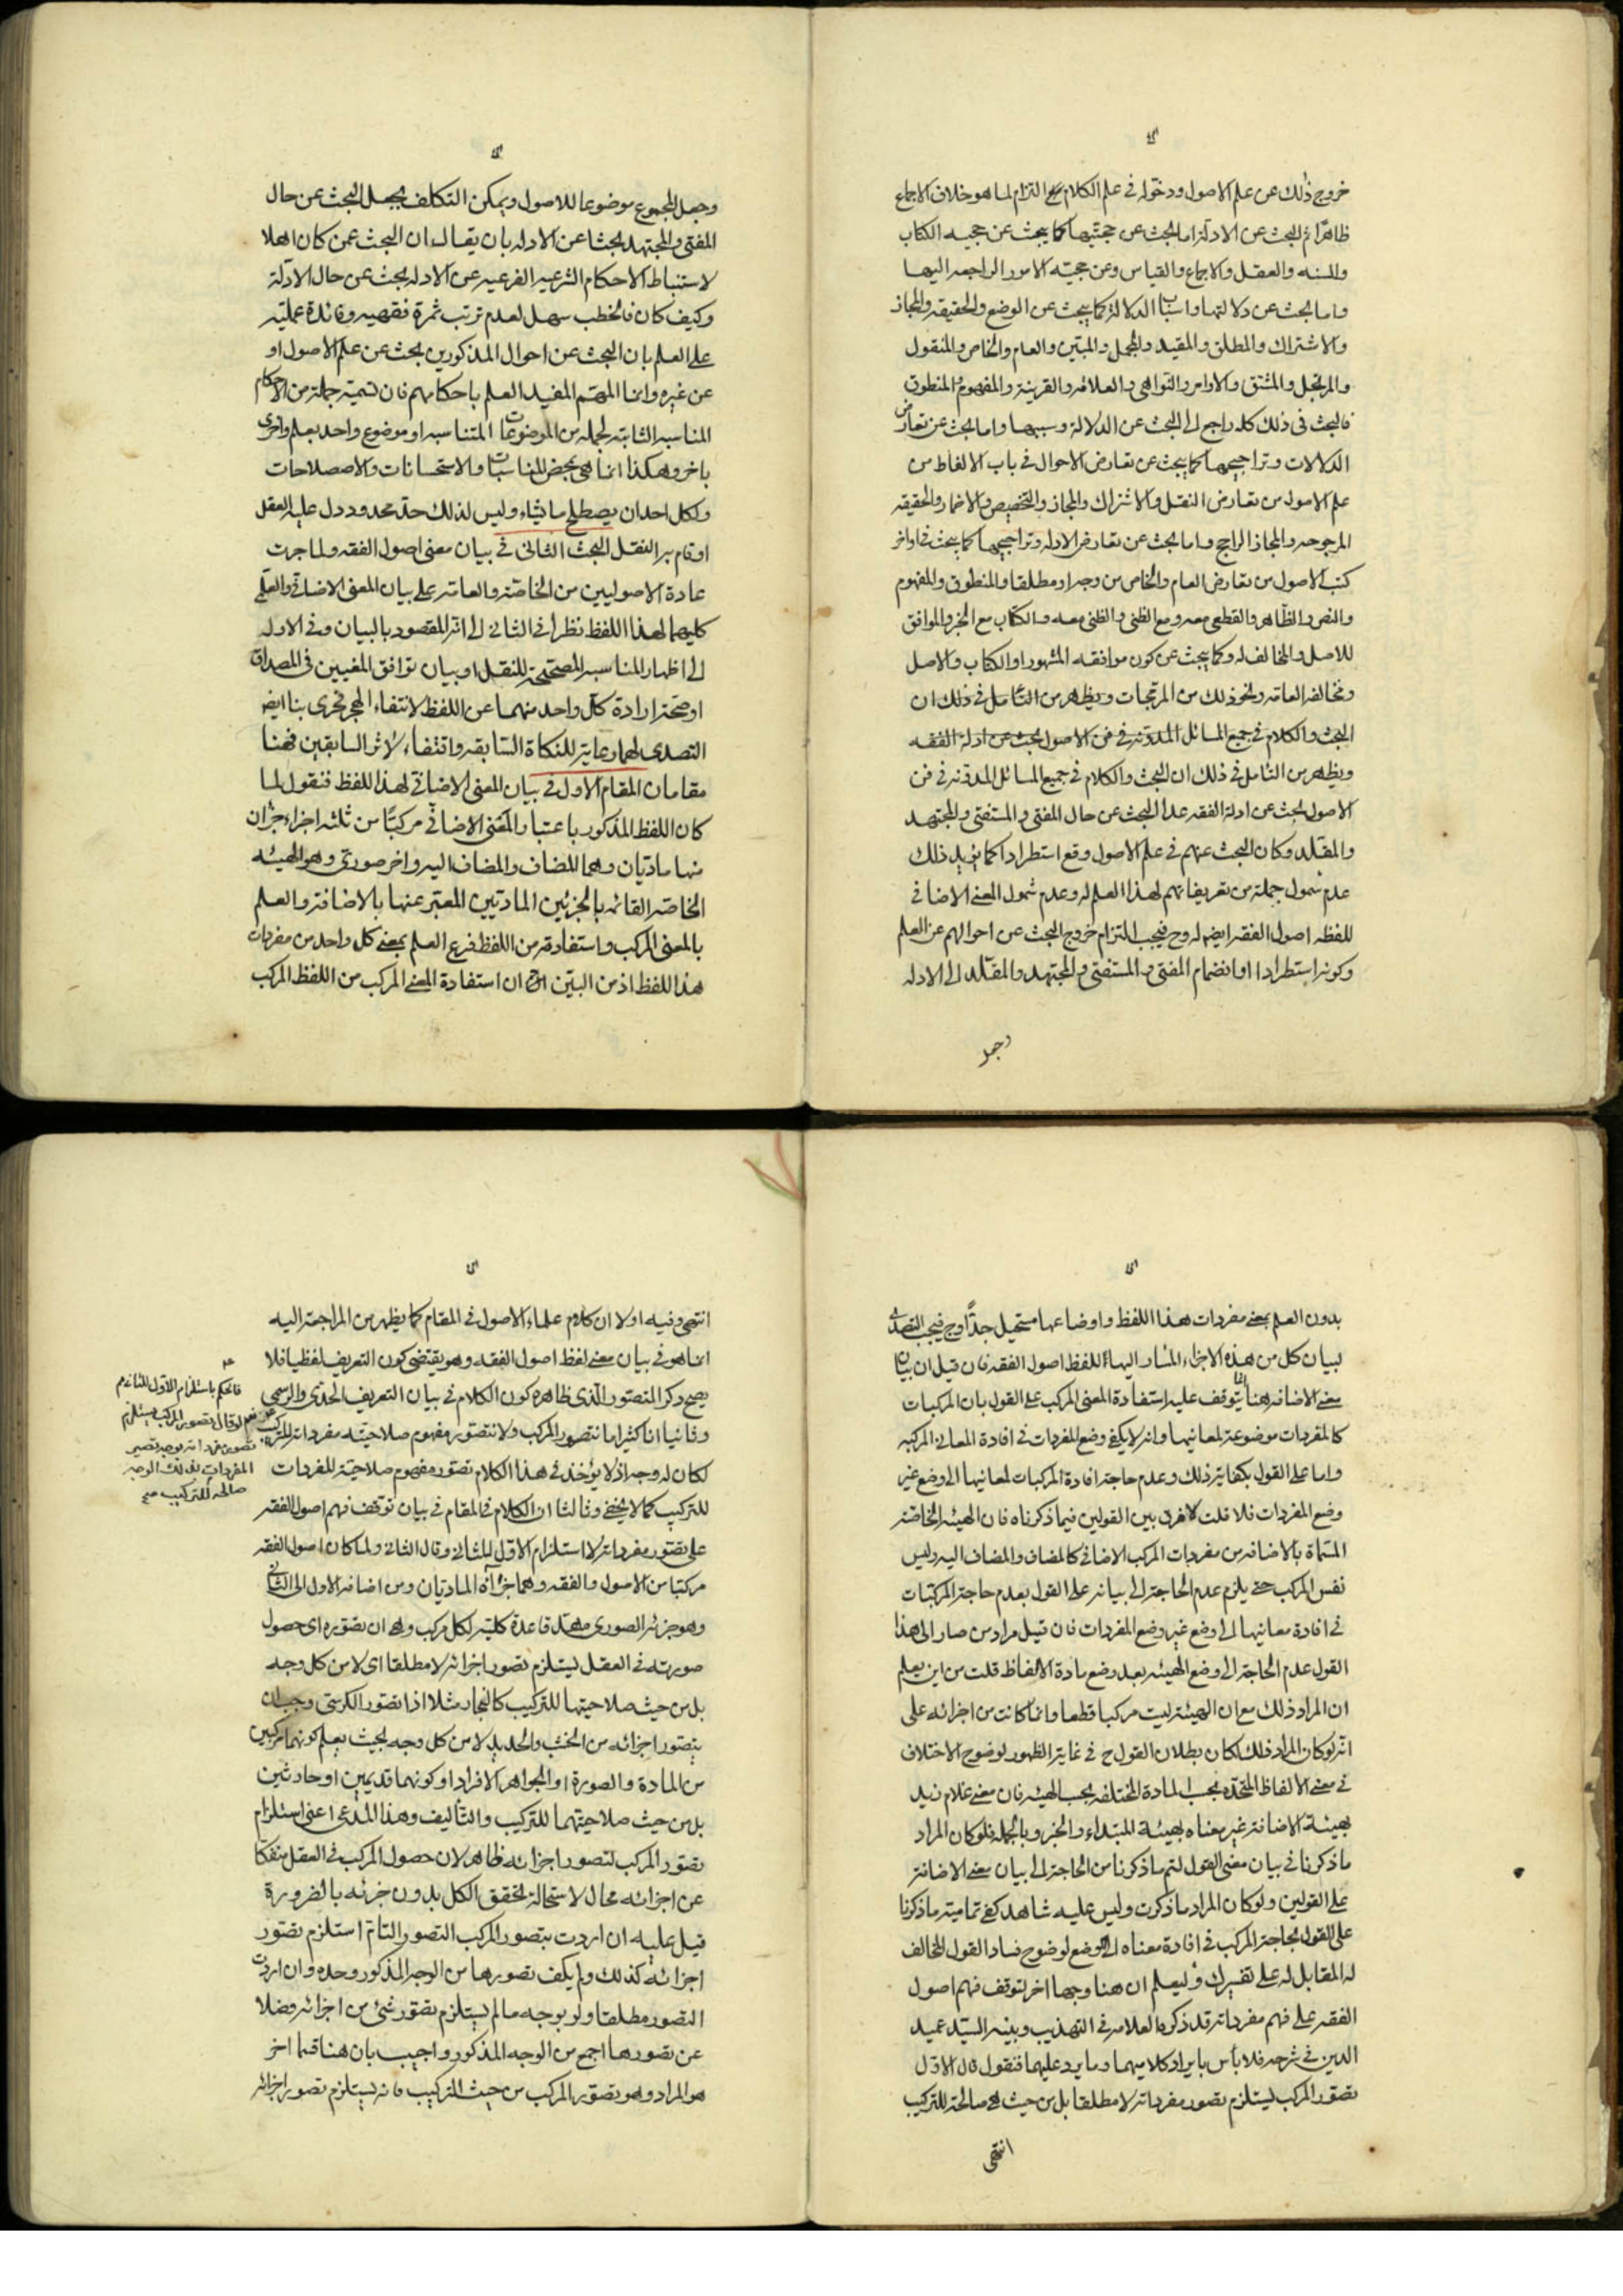 خروج ذلك عن علم الاصول ودخوله في علم الكلام مع التزام لما هو خلاف الاجماع
ظاهرا ثم البحث عن الادلة اما لبحث عن حجيتها كما يبحث عن حجيه الكتاب
والسنه والعقل والاجماع والقياس وعن حجيته الامور الراجعه اليها
واما بحث عن دلالتها واسباب الدلالة كما يبحث عن الوضع والحقيقه والمجاز
والاشتراك والمطلق والمقيد والمجمل والمبين والعام والخاص والمنقول
والمرتجل والمشتق والاوامر والنواهي والعلائم والقرينة والمفهوم المنطوق
فالبحث في ذلك كله راجع الى البحث عن الدلالة وسببها واما بحث عن تعارض
الدلالات وتراجيحها كما يبحث عن تعارض الاحوال في باب الالفاظ من
علم الاصول من تعارض النقل والاشتراك والمجاز والتخصيص والاضمار والحقيقه
المرجوحه والمجاز الراجح واما بحث عن تعارض الادله وتراجيحها كما يبحث في اواخر
كتب الاصول من تعارض العام والخاص من وجه او مطلقا والمنطوق والمفهوم
والنص والظاهر والقطعي معه ومع الظني والظني معه والكتاب مع الخبر والموافق
للاصل والمخالف له وكما يبحث عن كون موافقه المشهور او الكتاب والاصل
ومخالفه العامه ونحو ذلك من المرجحات ويظهر من التامل في ذلك ان
البحث والكلام في جميع المسائل المدونه في فن الاصول بحث عن ادلة الفقه
ويظهر من التامل في ذلك ان البحث والكلام في جميع المسائل المدونه في فن
الاصول بحث عن ادلة الفقه عدا البحث عن حال المفتي والمستفتي والمجتهد
والمقلد وكان البحث عنهم في علم الاصول وقع استطرادا كما يؤيد ذلك
عدم شمول جملة من تعريفاتهم لهذا العلم له وعدم شمول المعنى الاضافي
للفظه اصول الفقه ايضا له وح فيجب التزام خروج البحث عن احوالهم عن العلم
وكونه استطرادا او انضمام المفتي والمستفتي والمجتهد والمقلد الى الادله
وجعل
وجعل المجموع موضوعا للاصول ويمكن التكلف بجعل البحث عن حال
المفتي والمجتهد بحثا عن الادله بان يقال ان البحث عمن كان اهلا
لاستنباط الاحكام الشرعيه الفرعيه عن الادله بحث عن حال الادلة
وكيف كان فالخطب سهل لعدم ترتب ثمرة فقهيه وفائدة عمليه
على العلم بان البحث عن احوال المذكورين بحث عن علم الاصول او
عن غيره وانما المهم المفيد العلم باحكامهم فان تسمية جملة من الاحكام
المناسبه الثابته لجمله من الموضوعات المتناسبه او موضوع واحد بعلم واخرى
باخر وهكذا انما هي بمحض المناسبات والاستحسانات والاصطلاحات
ولكل احد ان يصطلح ما يشاء وليس لذلك حد محدود دل عليه العقل
او قام به النقل البحث الثاني في بيان معنى اصول الفقه ولما جرت
عادة الاصوليين من الخاصه والعامه على بيان المعنى الاضافي والعلمي
كليهما لهذا اللفظ نظرا في الثاني الى انه المقصود بالبيان وفي الاول
الى اظهار المناسبه المصححة للنقل او بيان توافق المعنيين في المصداق
او صحة ارادة كل واحد منهما عن اللفظ لانتفاء الهجر فحرى بنا ايضا
التصدى لهما رعاية للنكاة السابقه واقتفاء لاثر السابقين فهنا
مقامان المقام الاول في بيان المعنى الاضافي لهذا اللفظ فنقول لما
كان اللفظ المذكور باعتبار المعنى الاضافي مركبا من ثلثه اجزاء جزان
منها ماديان وهما المضاف والمضاف اليه واخر صورى وهو الهيئه
الخاصه القائمه بالجزئين الماديين المعبر عنها بالاضافة والعلم
بالمعنى المركب واستفادته من اللفظ فرع العلم بمعنى كل واحد من مفردات
هذا اللفظ اذ من البين ان استفادة المعنى المركب من اللفظ المركب
بدون العلم بمعنى مفردات هذا اللفظ واوضاعها مستحيل جدا وح فيجب التصدى
لبيان كل من هذه الاجزاء المشار اليها للفظ اصول الفقه فان قيل ان بيان
معنى الاضافه هنا انما يتوقف عليه استفادة المعنى المركب على القول بان المركبات
كالمفردات موضوعة لمعانيها وانه لا يكفي وضع المفردات في افادة المعاني المركبه
واما على القول بكفاية ذلك وعدم حاجة افادة المركبات لمعانيها الى وضع غير
وضع المفردات فلا قلت لا فرق بين القولين فيما ذكرناه فان الهيئه الخاصة
المسماة بالاضافه من مفردات المركب الاضافي كالمضاف والمضاف اليه وليس
نفس المركب حتى يلزم عدم الحاجة الى بيانه على القول بعدم حاجة المركبات
في افادة معانيها الى وضع غير وضع المفردات فان قيل مراد من صار الى هذا
القول عدم الحاجة الى وضع الهيئه بعد وضع مادة الالفاظ قلت من اين يعلم
ان المراد ذلك مع ان الهيئة ليست مركبا قطعا وانما كانت من اجزائه على
انه لو كان المراد ذلك لكان بطلان القول ح في غاية الظهور لوضوح الاختلاف
في معنى الالفاظ المتحده بحسب المادة المختلفه بحسب الهيئه فان معنى غلام زيد
بهيئة الاضافة غير معناه بهيئة المبتداء والخبر وبالجمله فلو كان المراد
ما ذكرنا في بيان معنى القول لتم ما ذكرنا من الحاجة الى بيان معنى الاضافة
على القولين ولو كان المراد ما ذكرت وليس عليه شاهد كفى تماميته ما ذكرنا
على القول بحاجة المركب في افادة معناه الى الوضع لوضوح فساد القول المخالف
له المقابل له على تفسيرك وليعلم ان هنا وجها اخر لتوقف فهم اصول
الفقه على فهم مفرداته قد ذكره العلامه في التهذيب وبينه السيد عميد
الدين في شرحه فلا باس بايراد كلاميهما وما يرد عليهما فنقول قال الاول
تصور المركب يستلزم تصور مفرداته لا مطلقا بل من حيث هي صالحة للتركيب
انتهى
انتهى وفيه اولا ان كلام علماء الاصول في المقام كما يظهر من المراجعة اليه
انما هو في بيان معنى لفظ اصول الفقه وهو يقتضى كون التعريف لفظيا فلا
يصح ذكر التصور الذى ظاهره كون الكلام في بيان التعريف الحدى والرسمي
وثانيا انا كثيرا ما نتصور المركب ولا نتصور مفهوم صلاحيته مفرداته للتركيب
لكان له وجه اذ لا يؤخذ في هذا الكلام تصور مفهوم صلاحية المفردات
للتركيب كما لا يخفى وثالثا ان الكلام في المقام في بيان توقف فهم اصول الفقه
على تصور مفرداته لا استلزام الاول للثاني وقال الثاني ولما كان اصول الفقه
مركبا من الاصول والفقه وهما جزاه الماديان ومن اضافه الاول الى الثاني
وهو جزئه الصورى مهد قاعدة كلية لكل مركب وهي ان تصوره اى حصول
صورته في العقل يستلزم تصور اجزائه لا مطلقا اى لا من كل وجه
بل من حيث صلاحيتها للتركيب كالنجار مثلا اذا تصور الكرسي وجب ان
يتصور اجزائه من الخشب والحديد لا من كل وجه بحيث يعلم كونهما مركبين
من المادة والصورة او الجواهر الافراد او كونهما قديمين او حادثين
بل من حيث صلاحيتهما للتركيب والتأليف وهذا المدعى اعنى استلزام
تصور المركب لتصور اجزائه ظاهر لان حصول المركب في العقل منفكا
عن اجزائه محال لاستحالة تحقق الكل بدون جزئه بالضرورة
قيل عليه ان اردت بتصور المركب التصور التام استلزم تصور
اجزائه كذلك ولم يكف تصورها من الوجه المذكور وحده وان اردت
التصور مطلقا ولو بوجه ما لم يستلزم تصور شئ من اجزائه فضلا
عن تصورها اجمع من الوجه المذكور واجيب بان هنا قسما اخر
هو المراد وهو تصور المركب من حيث التركيب فانه يستلزم تصور اجزائه
فالحكم باستلزام الاول للثاني
نعم لو قال تصور المركب يستلزم
تصور مفرداته بوجه تصير
المفردات بذلك الوجه
صالحه للتركيب صح